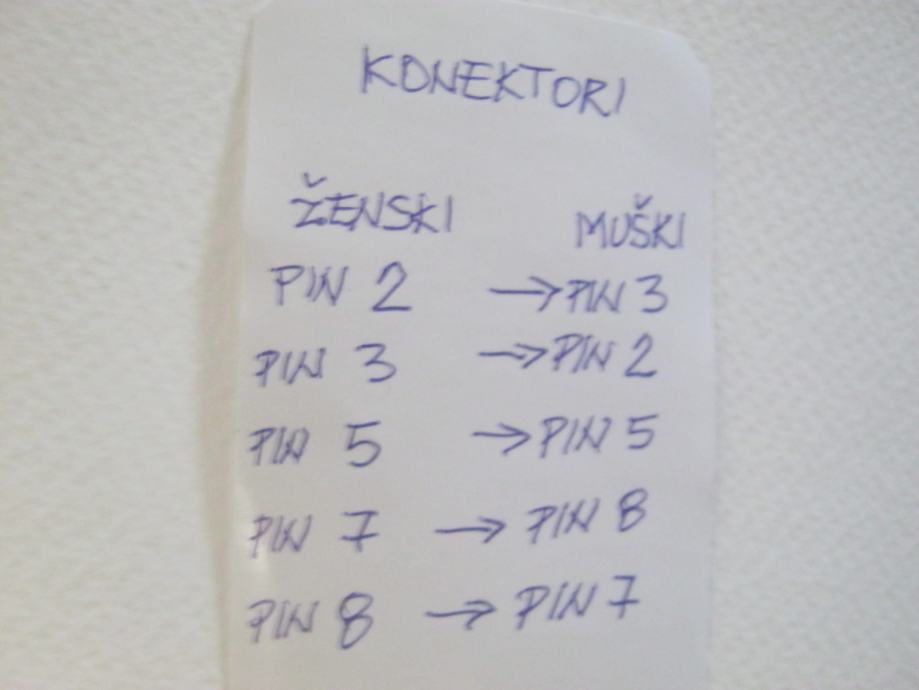 KONEKTORI
ŽENSKI MUŠKI
PIN 2 → PIN 3
PIN 3 → PIN 2
PIN 5 → PIN 5
PIN 7 → PIN 8
PIN 8 → PIN 7